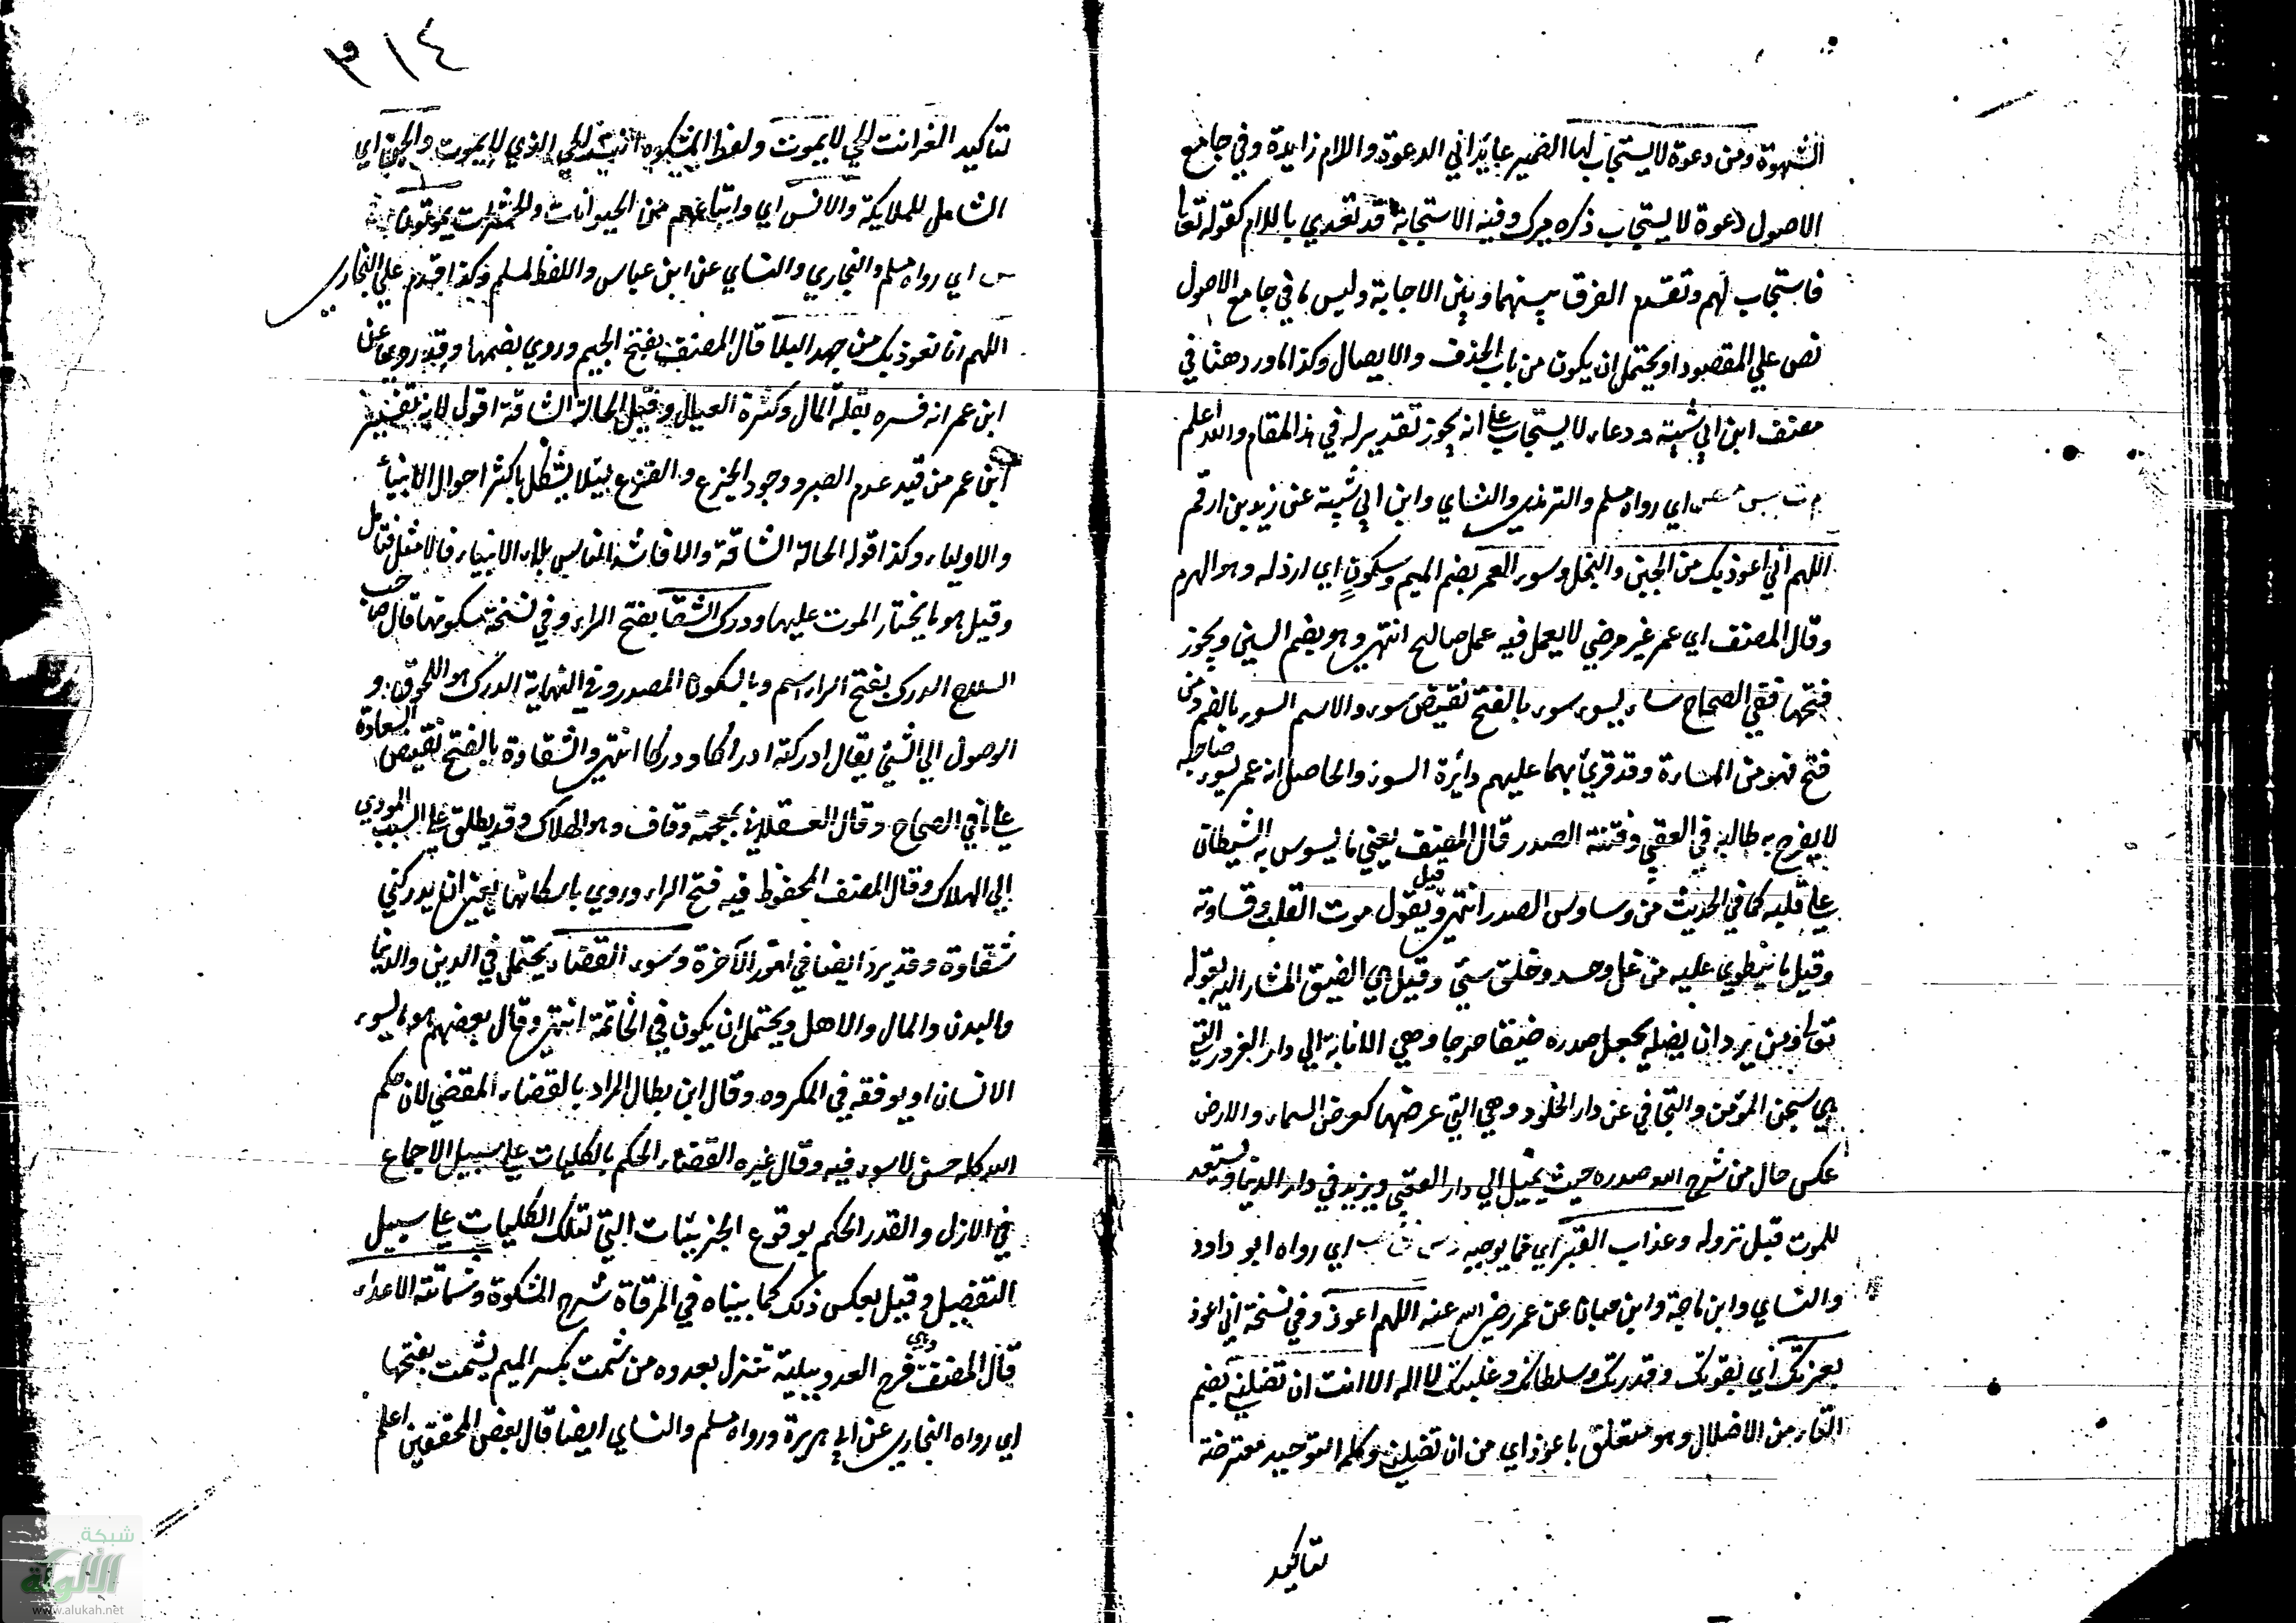 الشهوة ومن دعوة لا يستجاب لها الضمير عائد الي الدعوة واللام زايدة وفي جامع
الاصول دعوة لا يستجاب ذكره ميرك وفيه الاستجابة قد تتعدي باللام كقوله تعا
فاستجاب لهم وتقدم الفرق بينهما وبين الاجابة وليس ما في جامع الاصول
نص علي المقصود اذ يحتمل ان يكون من باب الحذف والايصال وكذا ما ورد هنا في
مصنف ابن ابي شيبة ودعاء لا يستجاب علي انه يجوز تقدير له في هذا المقام والله اعلم
م ت س مص اي رواه مسلم والترمذي والنساي وابن ابي شيبة عن زيد بن ارقم
اللهم اني اعوذ بك من الجبن والبخل وسوء العمر بضم الميم وسكون اي ارذله وهو الهرم
وقال المصنف اي عمر غير مرضي لا يعمل فيه عمل صالح انتهي وهو بضم السين ويجوز
فتحها ففي الصحاح ساء يسوء سوء بالفتح نقيض سره والاسم السوء بالضم ومن
فتح فهو من المساءة وقد قرئ بهما عليهم دائرة السوء والحاصل انه عمر يسوء صاحبه
لا يفرح به طالبه في العقبي وفتنة الصدر قال المصنف يعني ما يوسوس به الشيطان
علي قلبه كما في الحديث من وساوس الصدر انتهي وقيل يقول موت القلب وقساوته
وقيل ما ينطوي عليه من غل وحسد وخلق سئي وقيل هي الضيق المشار اليه بقوله
تعالي ومن يرد ان يضله يجعل صدره ضيقا حرجا وهي الانابة الي دار الغرور التي
هي سجن المؤمن والتجافي عن دار الخلود وهي التي عرضها كعرض السماء والارض
عكس حال من شرح الله صدره حيث يميل الي دار العقبي ويزهد في دار الدنيا ويستعد
للموت قبل نزوله وعذاب القبر اي مما يوجبه د س ق حب اي رواه ابو داود
والنساي وابن ماجة وابن حبان عن عمر رضي الله عنه اللهم اعوذ وفي نسخة اني اعوذ
بعزتك اي بقوتك وقدرتك وسلطانك وغلبتك لا اله الا انت ان تضلني بضم
التاء من الاضلال وهو متعلق باعوذ اي من ان تضلني وكلمة التوحيد معترضة
لتاكيد
٣١٤
لتاكيد العز انت الحي لا يموت ولفظ المشكوة انت الحي الذي لا يموت والجن اي
الشامل للملايكة والانس اي واتباعهم من الحيوانات والحشرات يموتون خ م
س اي رواه مسلم والبخاري والنساي عن ابن عباس واللفظ لمسلم وكذا قدم علي البخاري
اللهم انا نعوذ بك من جهد البلا قال المصنف بفتح الجيم وروي بضمها وقد روي عن
ابن عمر انه فسره بقلة المال وكثرة العيال وقيل الحالة الشاقة اقول لا بد في تفسير
ابن عمر من قيد عدم الصبر ووجود الجزع والفزع لئلا يشكل باكثر احوال الانبياء
والاولياء وكذا قوله الحالة الشاقة والا فاشد الناس بلاء الانبياء فالامثل فتامل
وقيل هو ما يختار الموت عليها ودرك الشقا بفتح الراء وفي نسخة بسكونها قال صاحب
السلاح الدرك بفتح الراء اسم وبالسكون المصدر وفي النهاية الدرك هو اللحوق و
الوصول الي الشئ يقال ادركته ادراكا ودركا انتهي والشقاوة بالفتح نقيض السعادة
علي ما في الصحاح وقال العسقلاني بمعجمة وقاف وهو الهلاك وقد يطلق علي السبب المودي
الي الهلاك وقال المصنف المحفوظ فيه فتح الراء وروي باسكانها يعني ان يدركني
شقاوة وقد يرد ايضا في امور الآخرة وسوء القضاء يحتمل في الدين والدنيا
والبدن والمال والاهل ويحتمل ان يكون في الخاتمة انتهي وقال بعضهم هو ما يسوء
الانسان او يوقعه في المكروه وقال ابن بطال المراد بالقضاء المقضي لان حكم
الله كله حسن لا سوء فيه وقال غيره القضاء الحكم بالكليات علي سبيل الاجماع
في الازل والقدر الحكم بوقوع الجزئيات التي لتلك الكليات علي سبيل
التفصيل وقيل بعكس ذلك كما بيناه في المرقاة شرح المشكوة وشماتة الاعداء
قال المصنف وهي فرح العدو ببلية تنزل بعدوه من شمت بكسر الميم يشمت بفتحها
اي رواه البخاري عن ابي هريرة ورواه مسلم والنساي ايضا قال بعض المحققين اعلم
شبكة
الألوكة
www.alukah.net